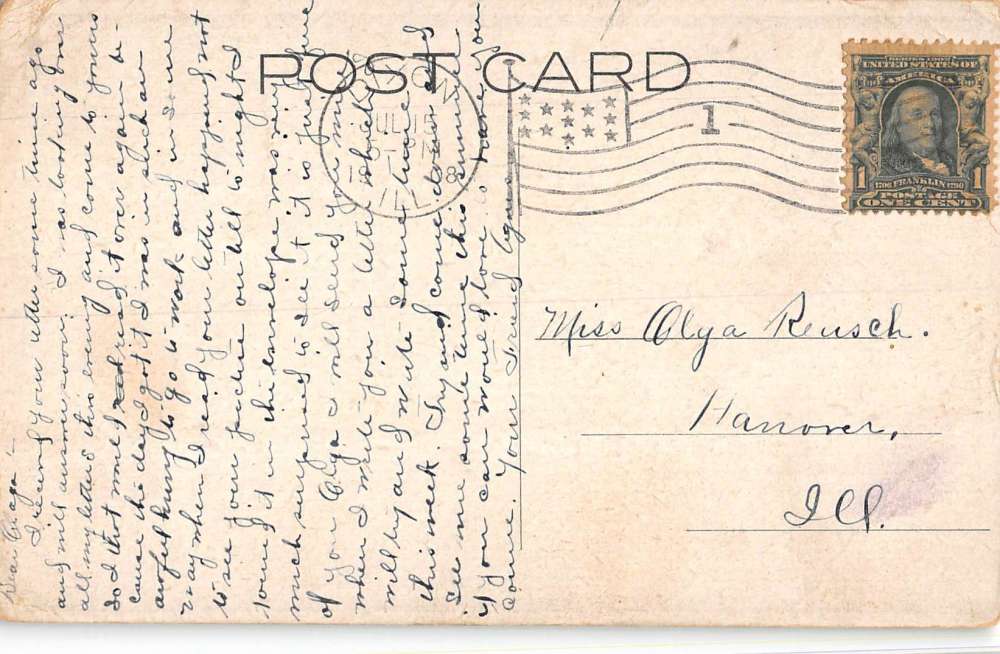 POST CARD
SERIES 1902
UNITED STATES OF
AMERICA
1 1706 FRANKLIN 1790 1
POSTAGE
ONE CENT
1
ILL.
Miss Olga Reusch.
Hanover,
Ill.
Dear Olga -
I received your letter some time ago
and will answer soon. I was looking over
all my letters this evening and come to yours
so that would read it over again be-
cause the day I got it I was in such an
awful hurry to go to work and in some
way when I read your letter happened not
to see your picture on till to-night I
found it in the envelope was very
much surprised to see it it is just fine
of you Olga I will send you mine
when I write you a letter which I
will try and write some time
this week. Try and come down and
see me some time this summer
if you can would love to have you
come. Your Friend